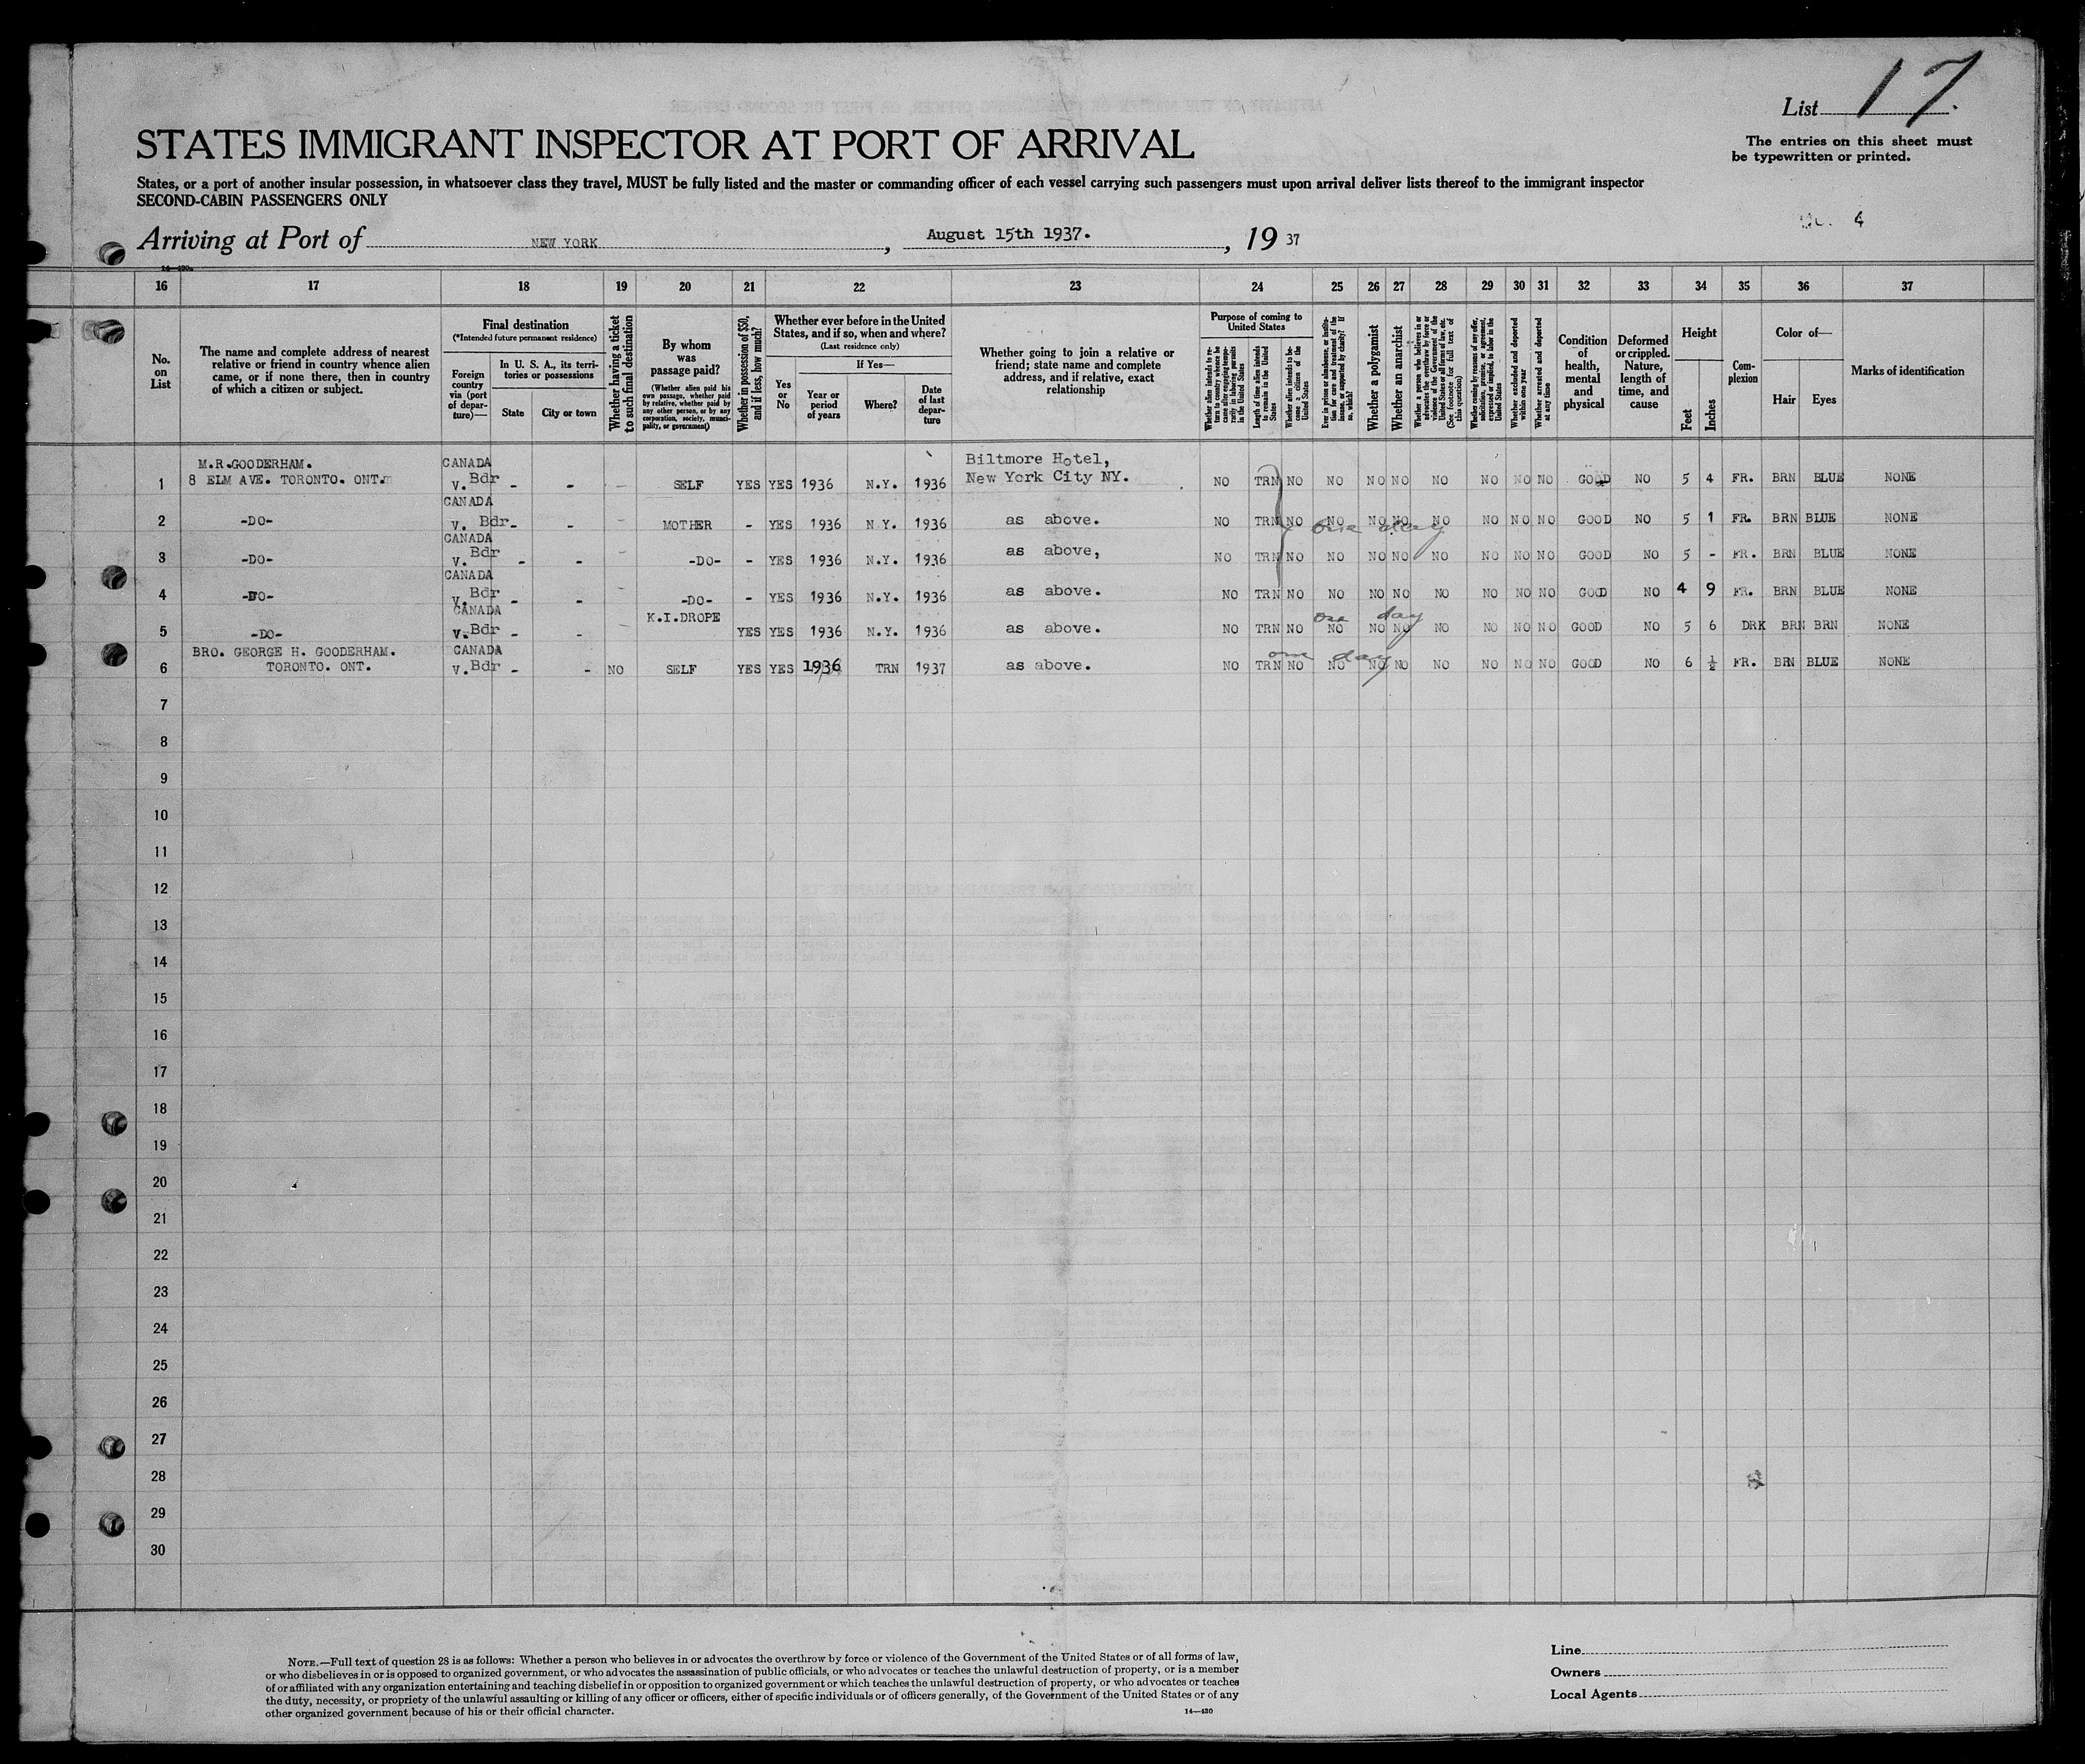 List 17.
The entries on this sheet must
be typewritten or printed.
STATES IMMIGRANT INSPECTOR AT PORT OF ARRIVAL
States, or a port of another insular possession, in whatsoever class they travel, MUST be fully listed and the master or commanding officer of each vessel carrying such passengers must upon arrival deliver lists thereof to the immigrant inspector
SECOND-CABIN PASSENGERS ONLY
4
Arriving at Port of NEW YORK, August 15th 1937., 19 37
16 17 18 19 20 21 22 23 24 25 26 27 28 29 30 31 32 33 34 35 36 37
No. on List
The name and complete address of nearest relative or friend in country whence alien came, or if none there, then in country of which a citizen or subject.
Final destination
(*Intended future permanent residence)
Foreign country via (port of departure)—
In U. S. A., its territories or possessions
State
City or town
Whether having a ticket to such final destination
By whom was passage paid?
(Whether alien paid his own passage, whether paid by relative, whether paid by any other person, or by any corporation, society, municipality, or government)
Whether in possession of $50, and if less, how much?
Whether ever before in the United States, and if so, when and where?
(Last residence only)
Yes or No
If Yes—
Year or period of years
Where?
Date of last departure
Whether going to join a relative or friend; state name and complete address, and if relative, exact relationship
Purpose of coming to United States
Whether alien intends to return to country whence he came after engaging temporarily in laboring pursuits in the United States
Length of time alien intends to remain in the United States
Whether alien intends to become a citizen of the United States
Ever in prison or almshouse, or institution for care and treatment of the insane, or supported by charity? If so, which?
Whether a polygamist
Whether an anarchist
Whether a person who believes in or advocates the overthrow by force or violence of the Government of the United States or all forms of law, etc. (See footnote for full text of this question)
Whether coming by reason of any offer, solicitation, promise, or agreement, expressed or implied, to labor in the United States
Whether excluded and deported within one year
Whether arrested and deported at any time
Condition of health, mental and physical
Deformed or crippled. Nature, length of time, and cause
Height
Feet
Inches
Complexion
Color of—
Hair
Eyes
Marks of identification
M.R.GOODERHAM. CANADA Biltmore Hotel,
1 8 ELM AVE. TORONTO. ONT. v. Bdr - - - SELF YES YES 1936 N.Y. 1936 New York City NY. NO TRN NO NO NO NO NO NO NO NO GOOD NO 5 4 FR. BRN BLUE NONE
CANADA
2 -DO- v. Bdr- - MOTHER - YES 1936 N.Y. 1936 as above. NO TRN NO NO NO NO NO NO NO NO GOOD NO 5 1 FR. BRN BLUE NONE
one day
CANADA
3 -DO- v. Bdr - - -DO- - YES 1936 N.Y. 1936 as above, NO TRN NO NO NO NO NO NO NO NO GOOD NO 5 - FR. BRN BLUE NONE
CANADA
4 -DO- v. Bdr - - -DO- - YES 1936 N.Y. 1936 as above. NO TRN NO NO NO NO NO NO NO NO GOOD NO 4 9 FR. BRN BLUE NONE
CANADA K.I.DROPE one day
5 -DO- v. Bdr - - YES YES 1936 N.Y. 1936 as above. NO TRN NO NO NO NO NO NO NO NO GOOD NO 5 6 DRK BRN BRN NONE
BRO. GEORGE H. GOODERHAM. CANADA one day
6 TORONTO. ONT. v. Bdr - - NO SELF YES YES 1936 TRN 1937 as above. NO TRN NO NO NO NO NO NO NO NO GOOD NO 6 ½ FR. BRN BLUE NONE
7
8
9
10
11
12
13
14
15
16
17
18
19
20
21
22
23
24
25
26
27
28
29
30
NOTE.—Full text of question 28 is as follows: Whether a person who believes in or advocates the overthrow by force or violence of the Government of the United States or of all forms of law,
or who disbelieves in or is opposed to organized government, or who advocates the assassination of public officials, or who advocates or teaches the unlawful destruction of property, or is a member
of or affiliated with any organization entertaining and teaching disbelief in or opposition to organized government or which teaches the unlawful destruction of property, or who advocates or teaches
the duty, necessity, or propriety of the unlawful assaulting or killing of any officer or officers, either of specific individuals or of officers generally, of the Government of the United States or of any
other organized government because of his or their official character.
14—430
Line
Owners
Local Agents